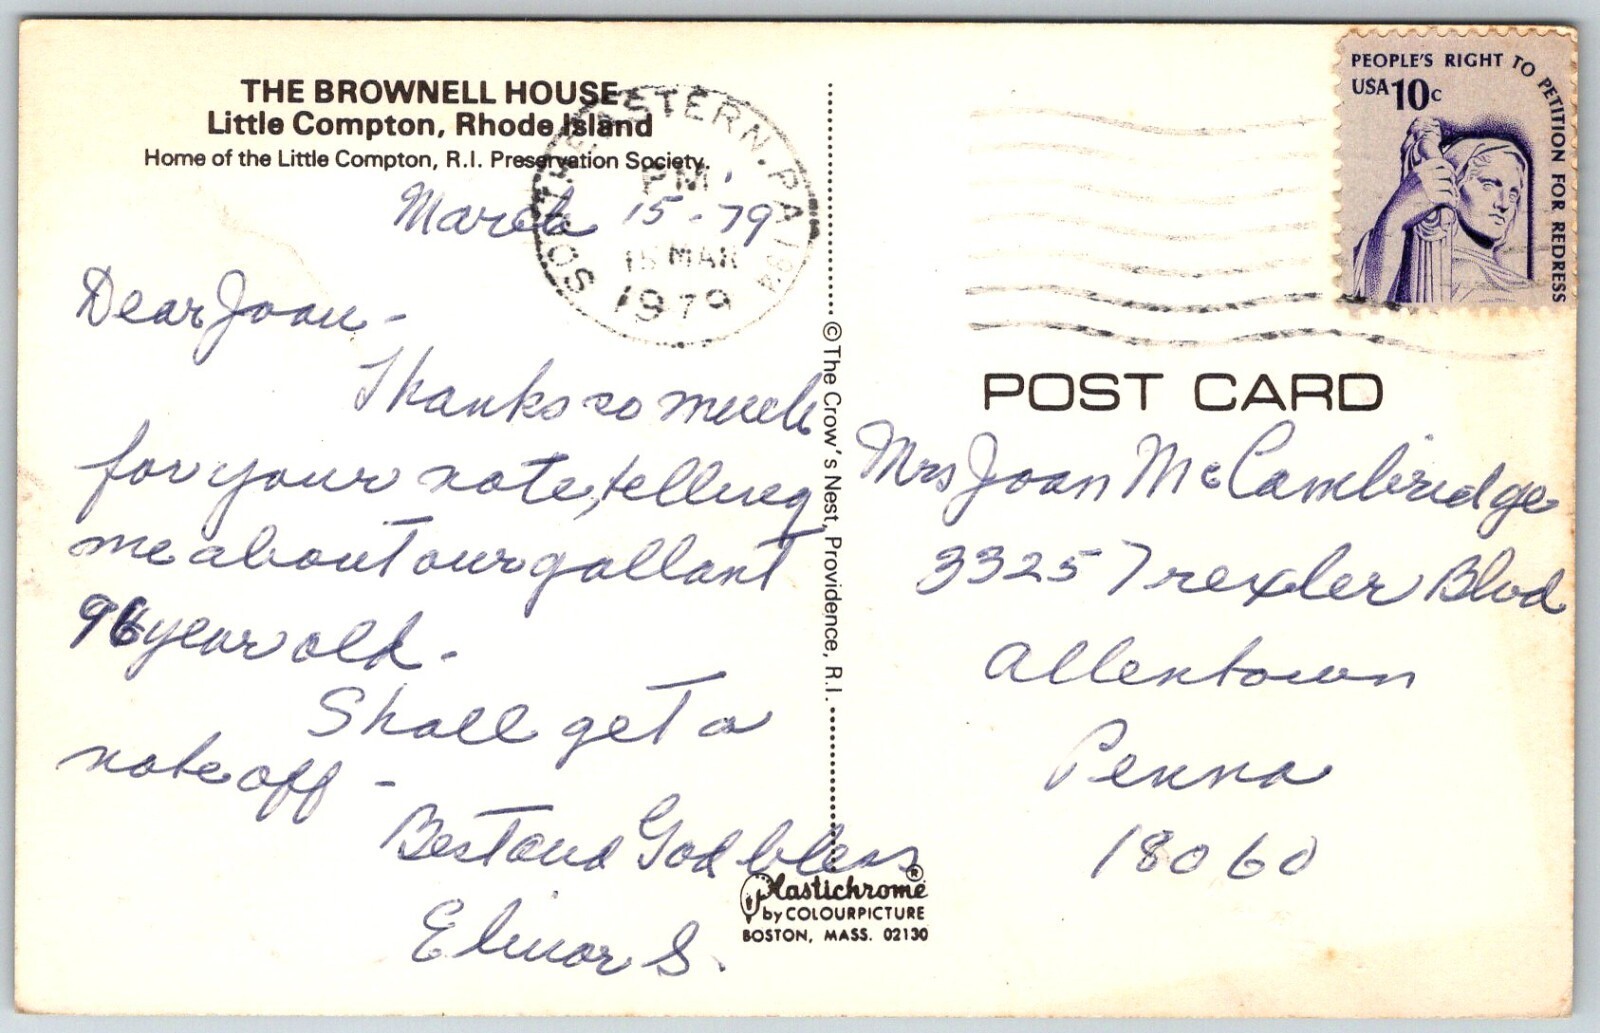 THE BROWNELL HOUSE
Little Compton, Rhode Island
Home of the Little Compton, R.I. Preservation Society.
March 15-79
Dear Joan -
Thanks so much
for your note, telling
me about our gallant
96 year old -
Shall get a
note off -
Best and God bless
Elinor S.
SOUTHEASTERN, PA 194
PM
15 MAR
1979
© The Crow's Nest, Providence, R.I.
Plastichrome®
by COLOURPICTURE
BOSTON, MASS. 02130
PEOPLE'S RIGHT TO PETITION FOR REDRESS
USA 10c
POST CARD
Mrs Joan McCambridge
3325 Trexler Blvd
Allentown
Penna
18060